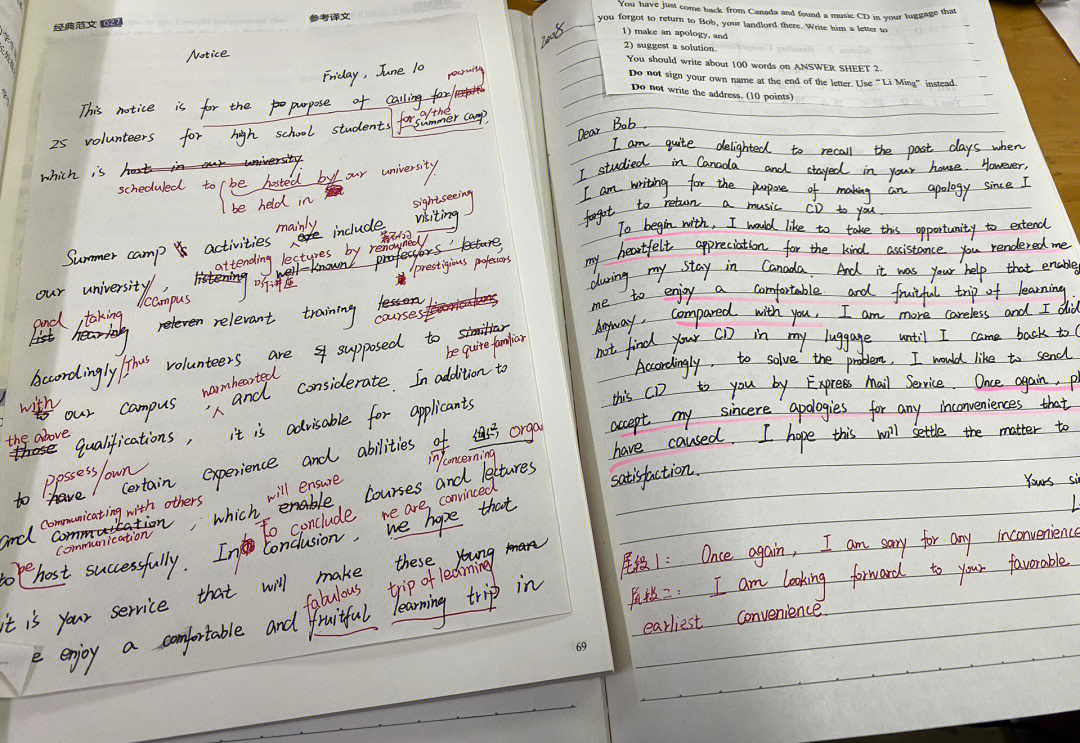 经典范文 027
参考译文
Notice
Friday, June 10
recruiting
This notice is for the purpose of calling for
25 volunteers for high school students for a/the summer camp,
which is host in our university
scheduled to be hosted by our university.
be held in
mainly
sightseeing
Summer camp activities are include visiting
attending lectures by renowned
our university, listening well-known professors' lecture,
campus
听讲座
prestigious professors
and taking
list hearing releven relevant training lesson
courses
Accordingly/Thus volunteers are supposed to similiar
be quite familiar
with warmhearted
to our campus, and considerate. In addition to
the above
those qualifications, it is advisable for applicants
possess/own
to have certain experience and abilities of 组织 orga
in/concerning
communicating with others will ensure
and communication, which enable courses and lectures
communication To conclude we are convinced
to be host successfully. In conclusion, we hope that
it is your service that will make these young man
fabulous trip of learning
e enjoy a comfortable and fruitful learning trip in
69
2008
You have just come back from Canada and found a music CD in your luggage that
you forgot to return to Bob, your landlord there. Write him a letter to
1) make an apology, and
2) suggest a solution.
You should write about 100 words on ANSWER SHEET 2.
Do not sign your own name at the end of the letter. Use "Li Ming" instead.
Do not write the address. (10 points)
Dear Bob.
I am quite delighted to recall the past days when
I studied in Canada and stayed in your house. However,
I am writing for the purpose of making an apology since I
forgot to return a music CD to you.
To begin with, I would like to take this opportunity to extend
my heartfelt appreciation for the kind assistance you rendered me
during my stay in Canada. And it was your help that enable
me to enjoy a comfortable and fruitful trip of learning.
Anyway, compared with you, I am more careless and I did
not find your CD in my luggage until I came back to
Accordingly, to solve the problem, I would like to send
this CD to you by Express Mail Service. Once again, pl
accept my sincere apologies for any inconveniences that
have caused. I hope this will settle the matter to
satisfaction.
Yours sin
L
尾段1: Once again, I am sorry for any inconvenience
尾段二: I am looking forward to your favorable
earliest convenience.